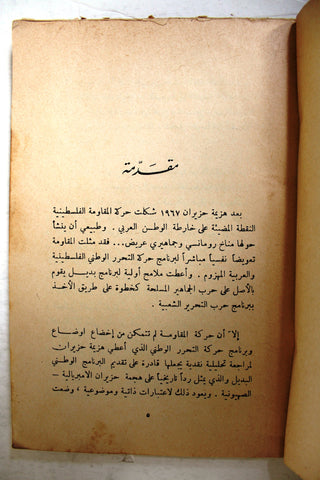 مقدّمة
بعد هزيمة حزيران ١٩٦٧ شكلت حركة المقاومة الفلسطينية
النقطة المضيئة على خارطة الوطن العربي . وطبيعي أن ينشأ
حولها مناخ رومانسي وجماهيري عريض... فقد مثلت المقاومة
تعويضاً نفسياً مباشراً لبرنامج حركة التحرر الوطني الفلسطينية
والعربية المهزوم . وأعطت ملامح أولية لبرنامج بديل يقوم
بالأصل على حرب الجماهير المسلحة كخطوة على طريق الأخذ
ببرنامج حرب التحرير الشعبية .
إلا أن حركة المقاومة لم تتمكن من إخضاع اوضاع
وبرنامج حركة التحرر الوطني الذي أعطي هزيمة حزيران
لمراجعة تحليلية نقدية يجعلها قادرة على تقديم البرنامج الوطني
البديل والذي يمثل رداً تاريخياً على هجمة حزيران الامبريالية –
الصهيونية . ويعود ذلك لاعتبارات ذاتية وموضوعية ، وضمت
٥